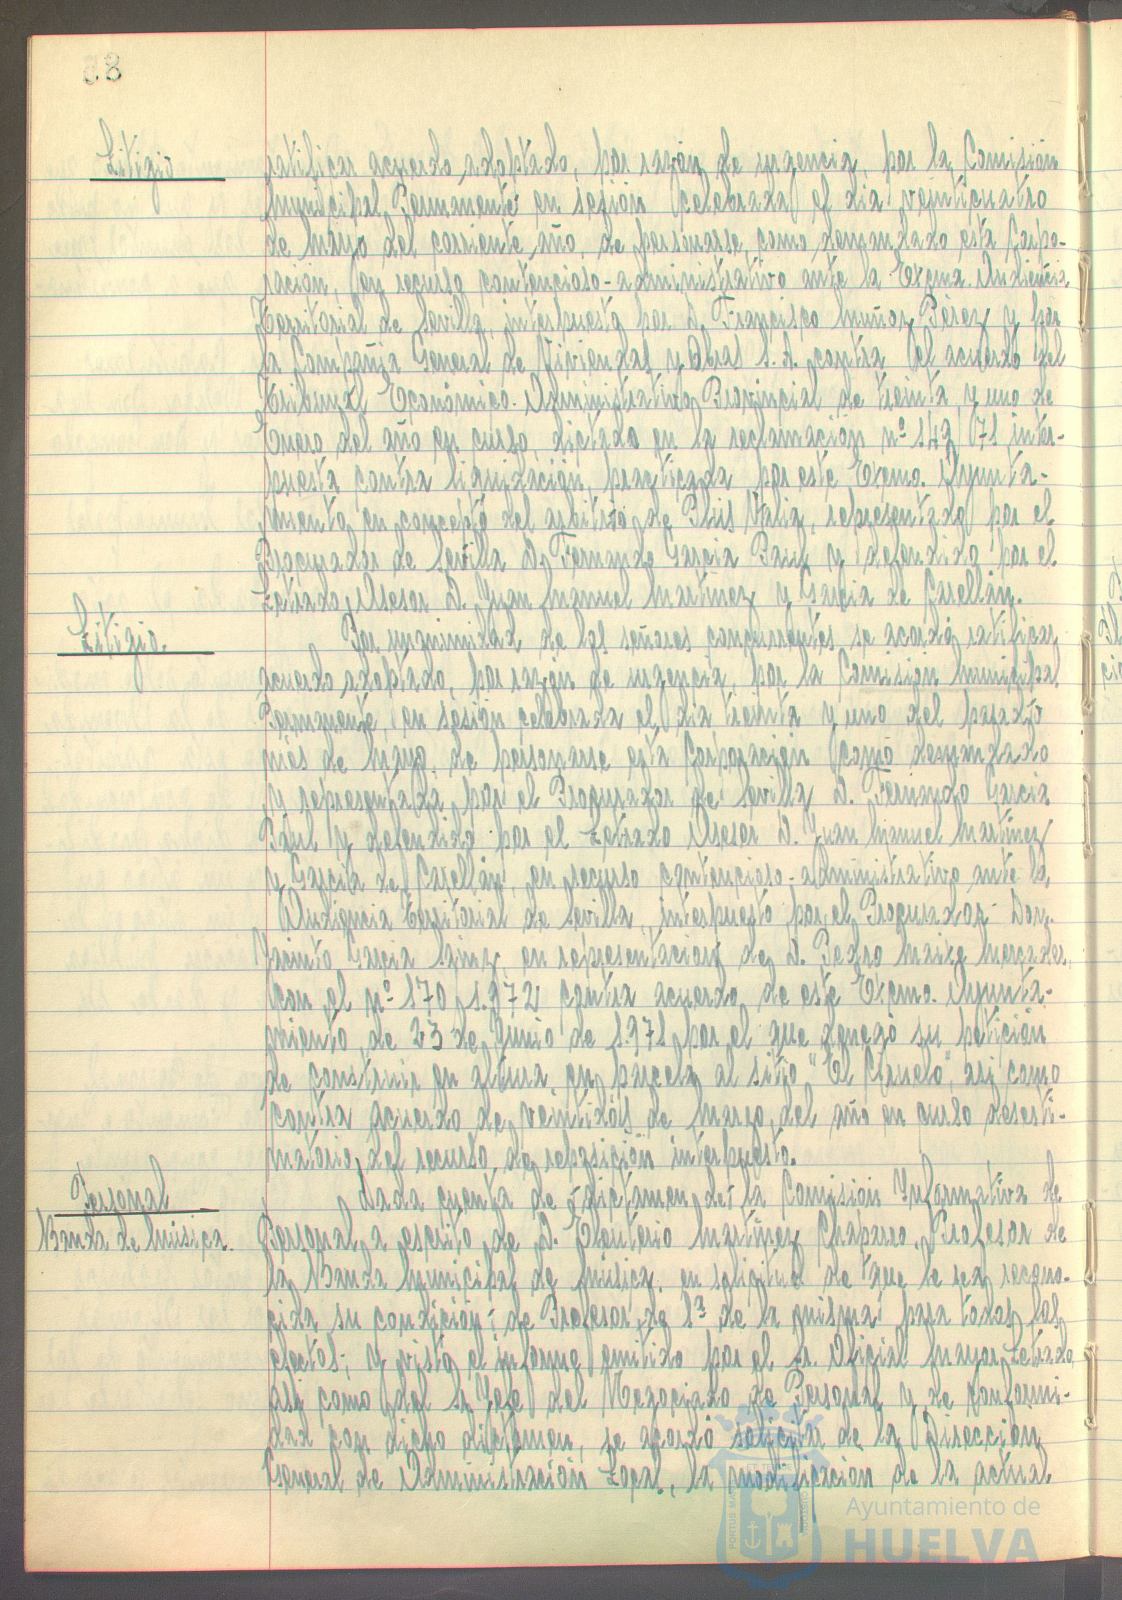 85
Litigio
ratificar acuerdo adoptado, por razón de urgencia, por la Comisión
Municipal Permanente en sesión celebrada el dia veinticuatro
de Mayo del corriente año, de personarse como demandado esta Corpo-
ración, en recurso contencioso-administrativo ante la Excma. Audiencia
Territorial de Sevilla, interpuesto por D. Francisco Muñoz Pérez y por
la Compañia General de Viviendas y Obras S.A. contra el acuerdo del
Tribunal Económico-Administrativo Provincial de treinta y uno de
Enero del año en curso, dictado en la reclamación nº 142/71 inter-
puesta contra liquidación practicada por este Excmo. Ayunta-
miento en concepto del arbitrio de Plus Valia, representado por el
Procurador de Sevilla D. Fernando Garcia Paul y defendido por el
Letrado Asesor D. Juan Manuel Martinez y Garcia de Casellán.
Litigio.
Por unanimidad de los señores concurrentes se acordó ratificar
acuerdo adoptado, por razón de urgencia, por la Comisión Municipal
Permanente, en sesión celebrada el dia treinta y uno del pasado
mes de Mayo, de personarse esta Corporación como demandado
y representada por el Procurador de Sevilla D. Fernando Garcia
Paul y defendida por el Letrado Asesor D. Juan Manuel Martinez
y Garcia de Casellán, en recurso contencioso-administrativo ante la
Audiencia Territorial de Sevilla, interpuesto por el Procurador Don
Jacinto Garcia Sainz, en representación de D. Pedro
con el nº 170/1.972, contra acuerdo de este Excmo. Ayunta-
miento, de 23 de Junio de 1.971 por el que denegó su petición
de construir en altura en parcela al sitio "El", asi como
contra acuerdo de veintidós de Marzo del año en curso desesti-
matorio del recurso de reposición interpuesto.
Personal
Banda de Música.
Dada cuenta de dictamen de la Comisión Informativa de
Personal a escrito de D. Eleuterio Martinez Chaparro, Profesor de
la Banda Municipal de Música, en solicitud de que le sea recono-
cida su condición de Profesor de 1ª de la misma para todos los
efectos; y visto el informe emitido por el Sr. Oficial Mayor Letrado,
asi como del Sr. Jefe del Negociado de Personal y de conformi-
dad con dicho dictamen, se acordó solicitar de la Dirección
General de Administración Local, la modificación de la actual
Ayuntamiento de
HUELVA